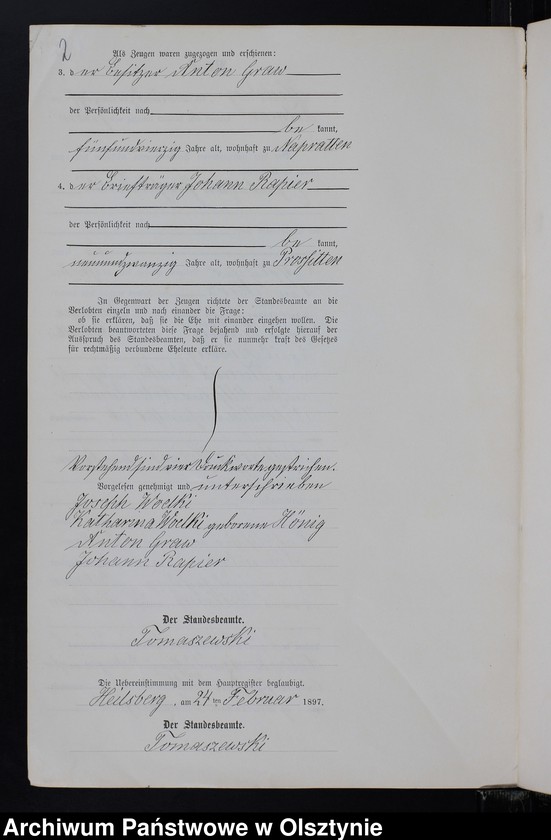 2
Als Zeugen waren zugezogen und erschienen:
3. der Besitzer Anton Graw
der Persönlichkeit nach
bekannt,
fünfundvierzig Jahre alt, wohnhaft zu Napratten
4. der Briefträger Johann Rapier
der Persönlichkeit nach
bekannt,
neunundzwanzig Jahre alt, wohnhaft zu Prossitten
In Gegenwart der Zeugen richtete der Standesbeamte an die
Verlobten einzeln und nach einander die Frage:
ob sie erklären, daß sie die Ehe mit einander eingehen wollen. Die
Verlobten beantworteten diese Frage bejahend und erfolgte hierauf der
Ausspruch des Standesbeamten, daß er sie nunmehr kraft des Gesetzes
für rechtmäßig verbundene Eheleute erkläre.
Vorstehend sind vier Druckworte gestrichen.
Vorgelesen genehmigt und unterschrieben
Joseph Woelki
Katharina Woelki geborene Hönig
Anton Graw
Johann Rapier
Der Standesbeamte.
Tomaszewski
Die Uebereinstimmung mit dem Hauptregister beglaubigt.
Heilsberg, am 24ten Februar 1897.
Der Standesbeamte.
Tomaszewski
Archiwum Państwowe w Olsztynie